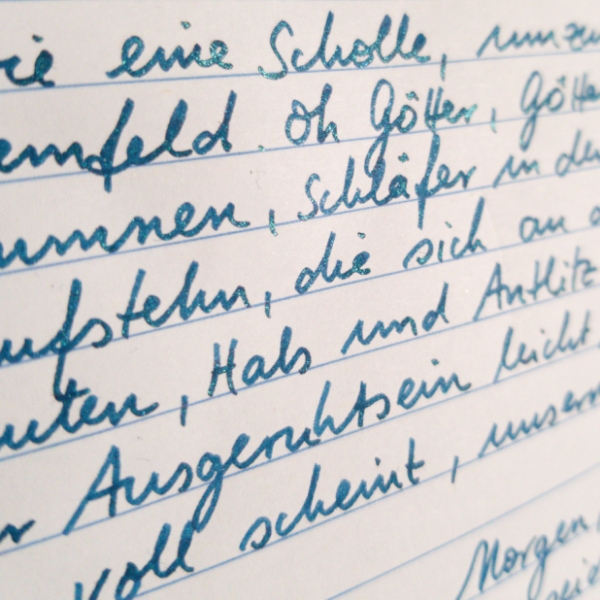 ie eine Scholle, umzu
ernfeld. Oh Götter, Götte
umnen, Schläfer in de
ufstehn, die sich an
uten, Hals und Antlitz
r Ausgeruhtsein leicht
voll scheint, unser
Morgen,
seid